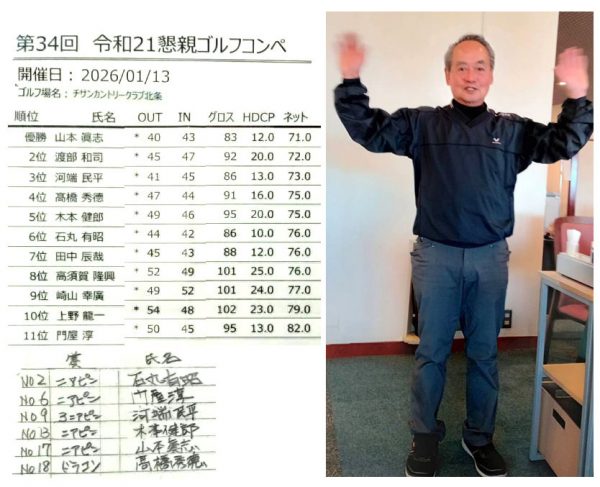 第34回 令和21懇親ゴルフコンペ
開催日：2026/01/13
ゴルフ場名： チサンカントリークラブ北条
順位 氏名 OUT IN グロス HDCP ネット
優勝 山本 眞志 * 40 43 83 12.0 71.0
2位 渡部 和司 * 45 47 92 20.0 72.0
3位 河端 民平 * 41 45 86 13.0 73.0
4位 高橋 秀徳 * 47 44 91 16.0 75.0
5位 木本 健郎 * 49 46 95 20.0 75.0
6位 石丸 有昭 * 44 42 86 10.0 76.0
7位 田中 辰哉 * 45 43 88 12.0 76.0
8位 高須賀 隆興 * 52 49 101 25.0 76.0
9位 崎山 幸廣 * 49 52 101 24.0 77.0
10位 上野 龍一 * 54 48 102 23.0 79.0
11位 門屋 淳 * 50 45 95 13.0 82.0
賞 氏名
No2 ニアピン 石丸有昭
No6 ニアピン 門屋淳
No9 3ニアピン 河端民平
No13 ニアピン 木本健郎
No17 ニアピン 山本眞志
No18 ドラコン 高橋秀徳